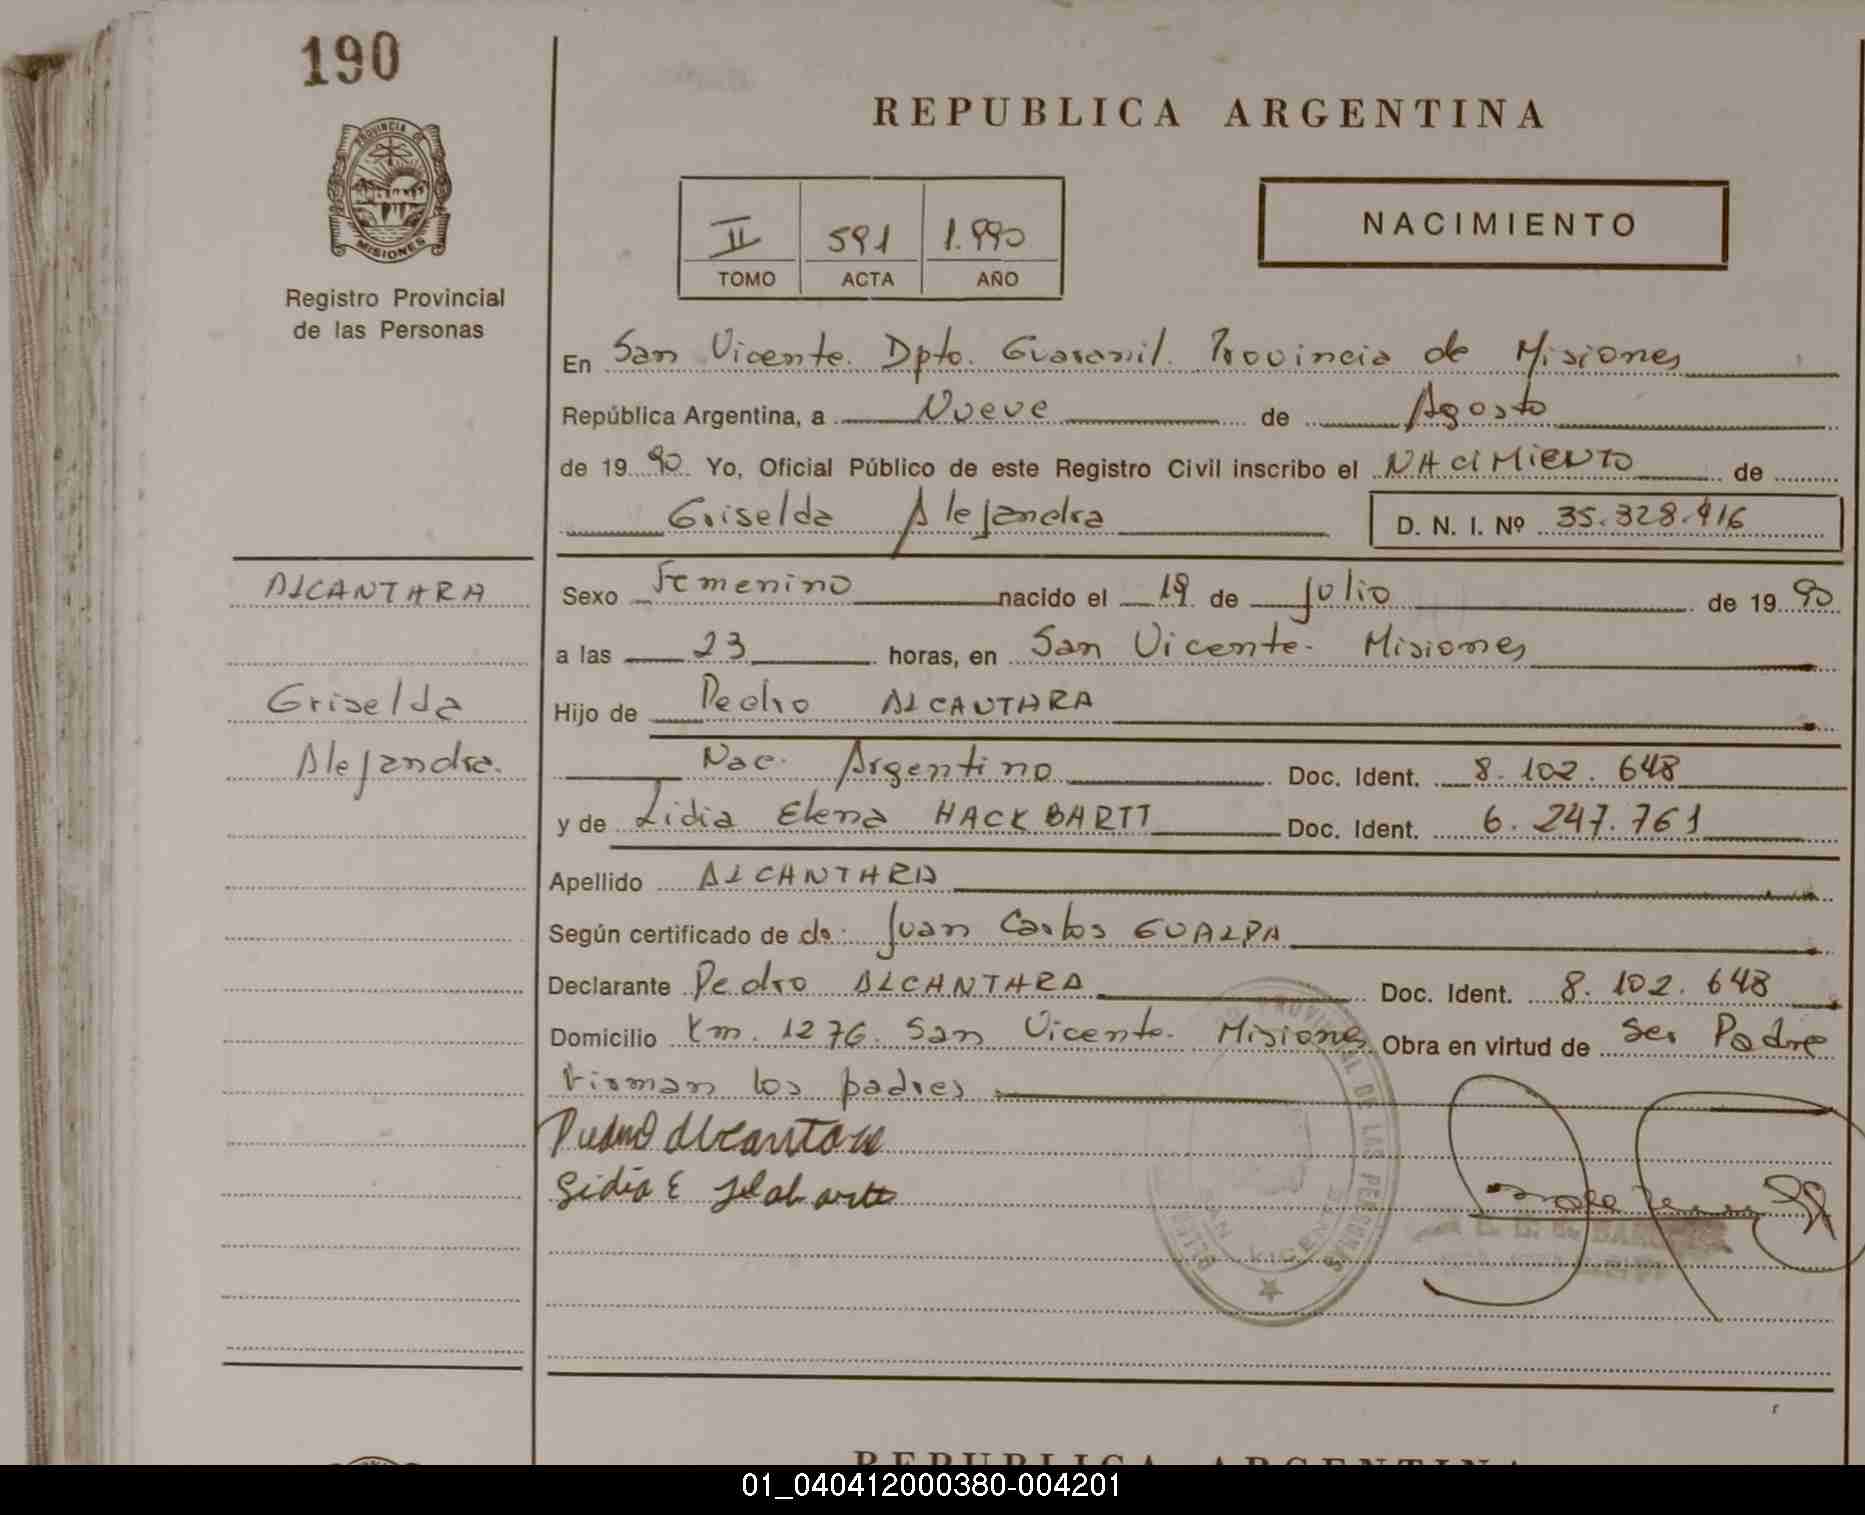 190
PROVINCIA DE
MISIONES
Registro Provincial
de las Personas
REPUBLICA ARGENTINA
II 591 1.990
TOMO ACTA AÑO
NACIMIENTO
En San Vicente. Dpto. Guaraní. Provincia de Misiones
República Argentina, a Nueve de Agosto
de 19 90 Yo, Oficial Público de este Registro Civil inscribo el NACIMIENTO de
Griselda Alejandra D. N. I. Nº 35.328.416
ALCANTHARA
Griselda
Alejandra.
Sexo Femenino nacido el 19 de Julio de 19 90
a las 23 horas, en San Vicente. Misiones
Hijo de Pedro ALCANTHARA
Nac. Argentino Doc. Ident. 8.102.648
y de Lidia Elena HACKBARTT Doc. Ident. 6.247.761
Apellido ALCANTHARA
Según certificado de dr. Juan Carlos GUALPA
Declarante Pedro ALCANTHARA Doc. Ident. 8.102.648
Domicilio Km. 1276. San Vicente. Misiones Obra en virtud de ser Padre
Firman los padres
Pedro Alcantara
Lidia E
SAN VICENTE
REPUBLICA ARGENTINA
01_040412000380-004201